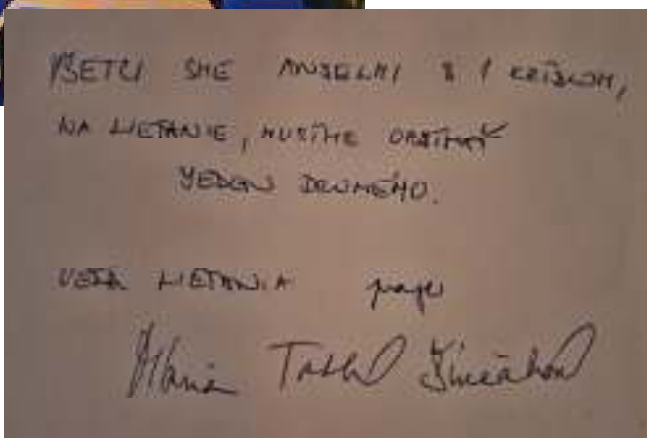 VŠETCI SME ANJELMI S 1 KRÍDLOM,
NA LIETANIE, MUSÍME OBJÍMAŤ
JEDEN DRUHÉHO.
VEĽA LIETANIA praje
Mária